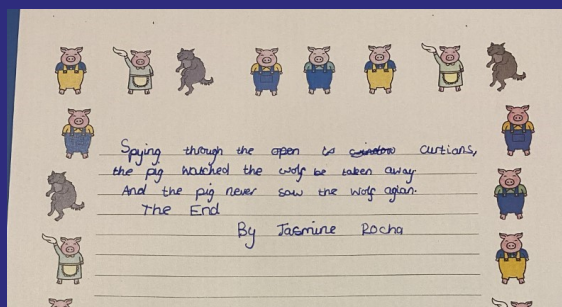 Spying through the open curtians,
the pig watched the wolf be taken away.
And the pig never saw the wolf agian.
The End
By Jasmine Rocha